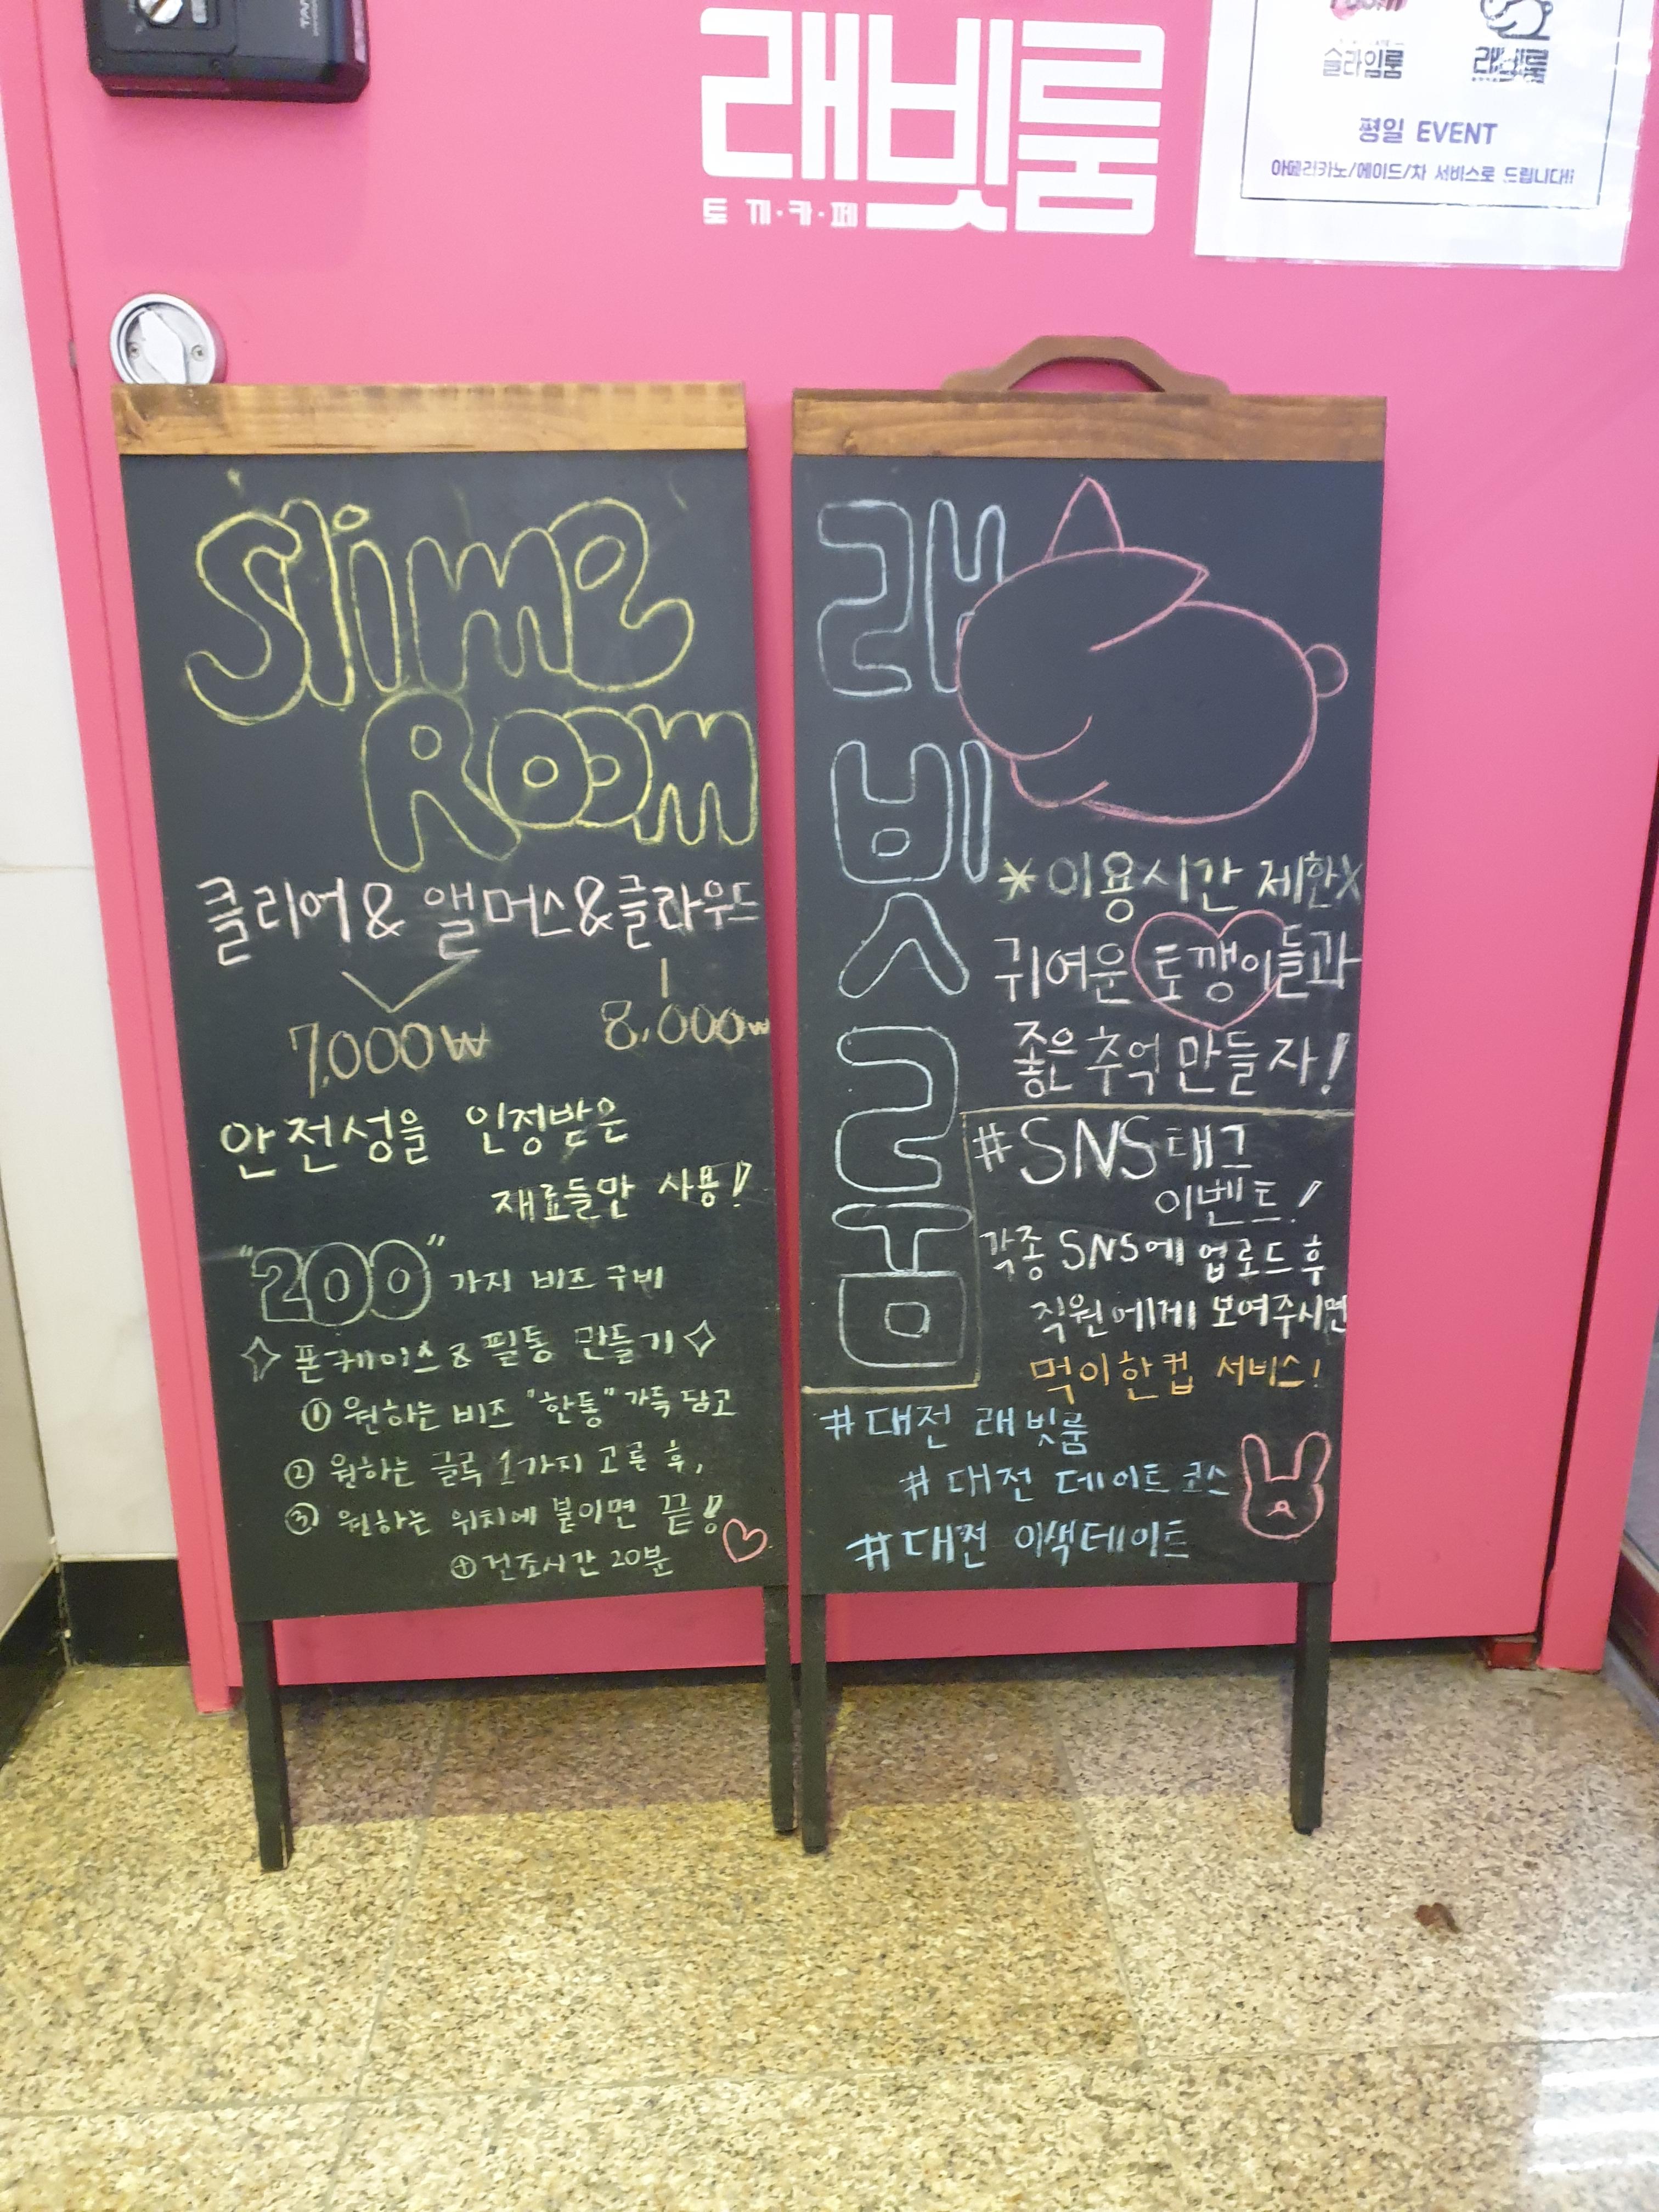 래빗룸
토끼·카·페
슬라임룸
래빗룸
평일 EVENT
아메리카노/에이드/차 서비스로 드립니다!!
Slime
Room
클리어& 앨머스&클라우드
7,000₩
8,000₩
안전성을 인정받은
재료들만 사용!
"200" 가지 비즈 구비
폰케이스 & 필통 만들기
① 원하는 비즈 "한통" 가득 담고
② 원하는 글루 1가지 고른 후,
③ 원하는 위치에 붙이면 끝!
⊕ 건조시간 20분
래빗룸
*이용시간 제한X
귀여운 토깽이들과
좋은 추억 만들자!
#SNS태그
이벤트!
각종 SNS에 업로드 후
직원에게 보여주시면
먹이한컵 서비스!
#대전 래빗룸
#대전 데이트코스
#대전 이색데이트